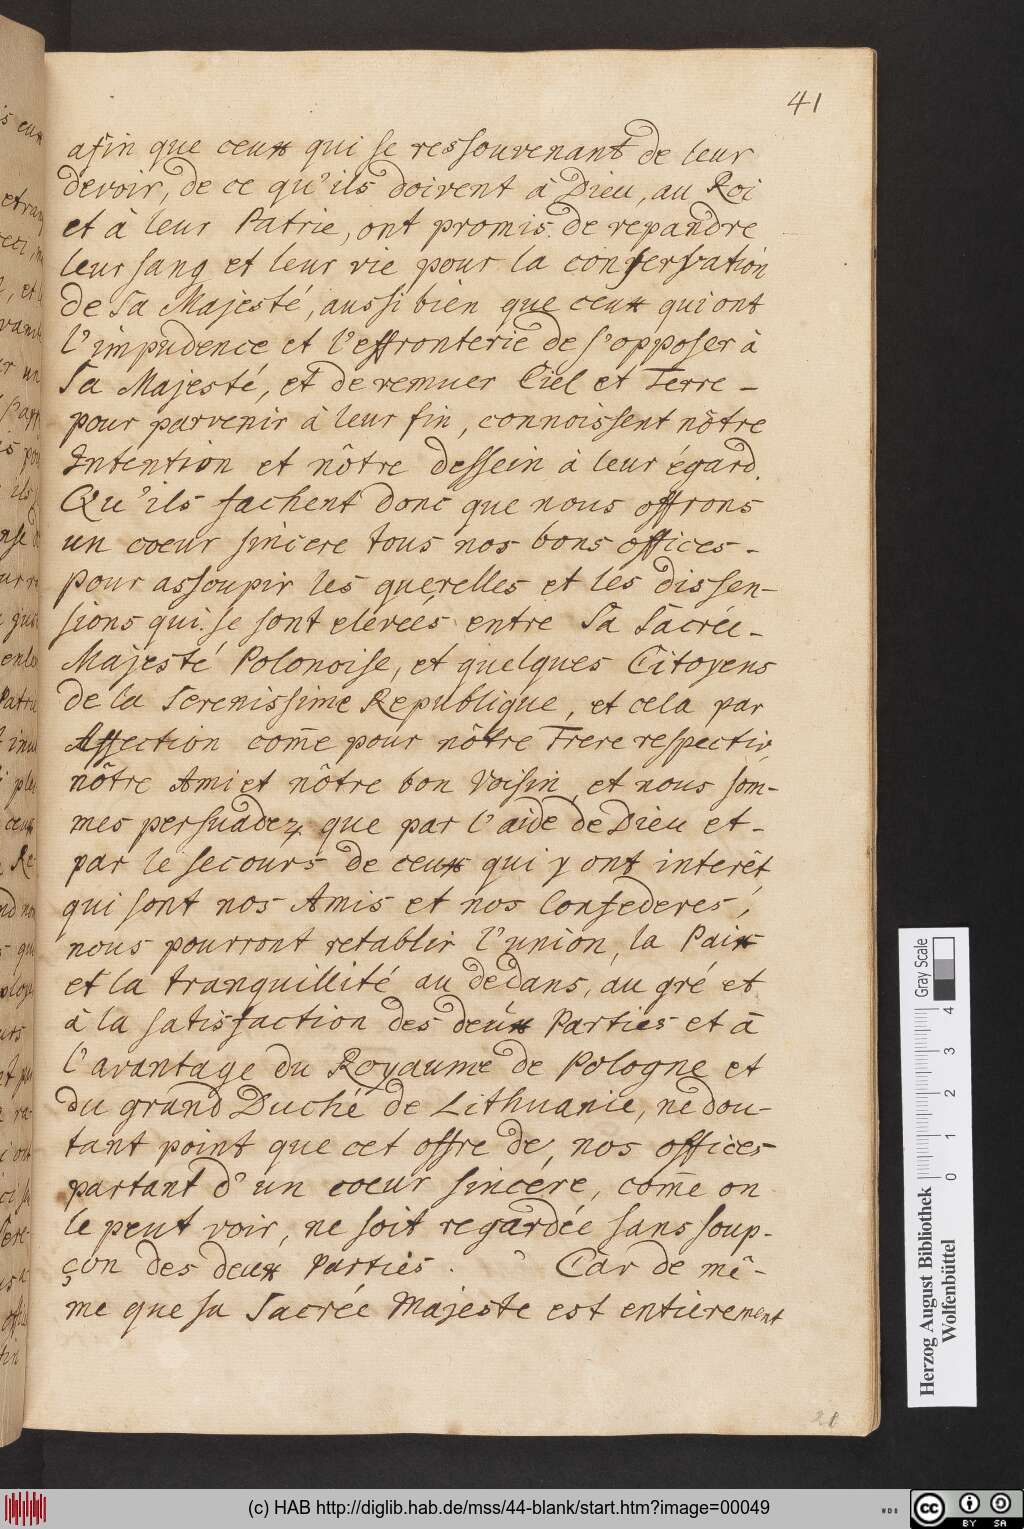 41
afin que ceux qui se ressouvenant de leur
devoir, de ce qu'ils doivent à Dieu, au Roi
et à leur Patrie, ont promis de repandre
leur sang et leur vie pour la conservation
de Sa Majesté, aussi bien que ceux qui ont
l'impudence et l'effronterie de s'opposer à
Sa Majesté, et de remuer Ciel et Terre -
pour parvenir à leur fin, connoissent nôtre
Intention et nôtre dessein à leur égard.
Qu'ils sachent donc que nous offrons
un coeur sincere tous nos bons offices -
pour assoupir les querelles et les dissen-
sions qui se sont elevées entre Sa Sacrée -
Majesté Polonoise, et quelques Citoyens
de la Serenissime Republique, et cela par
Affection com̄e pour nôtre Frere respectiv,
nôtre Ami et nôtre bon Voisin, et nous som-
mes persuadez que par l'aide de Dieu et -
par le secours de ceux qui y ont interêt,
qui sont nos Amis et nos Confederés,
nous pourront retablir l'union, la Paix
et la tranquillité au dedans, au gré et
à la satisfaction des deux Parties et à
l'avantage du Royaume de Pologne et
du grand Duché de Lithuanie, ne dou-
tant point que cet offre de, nos offices
partant d'un coeur sincére, com̄e on
le peut voir, ne soit regardée sans soup-
çon des deux Parties. Car de mê-
me que sa Sacrée Majeste est entièrement
Gray Scale
0 1 2 3 4
Herzog August Bibliothek
Wolfenbüttel
(c) HAB http://diglib.hab.de/mss/44-blank/start.htm?image=00049
cc BY SA